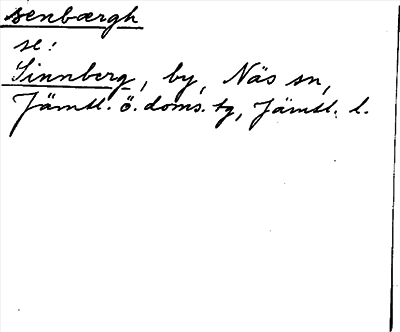 senbærgh
se:
Sinnberg, by, Näs sn,
Jämtl. ö. doms. tg, Jämtl. l.